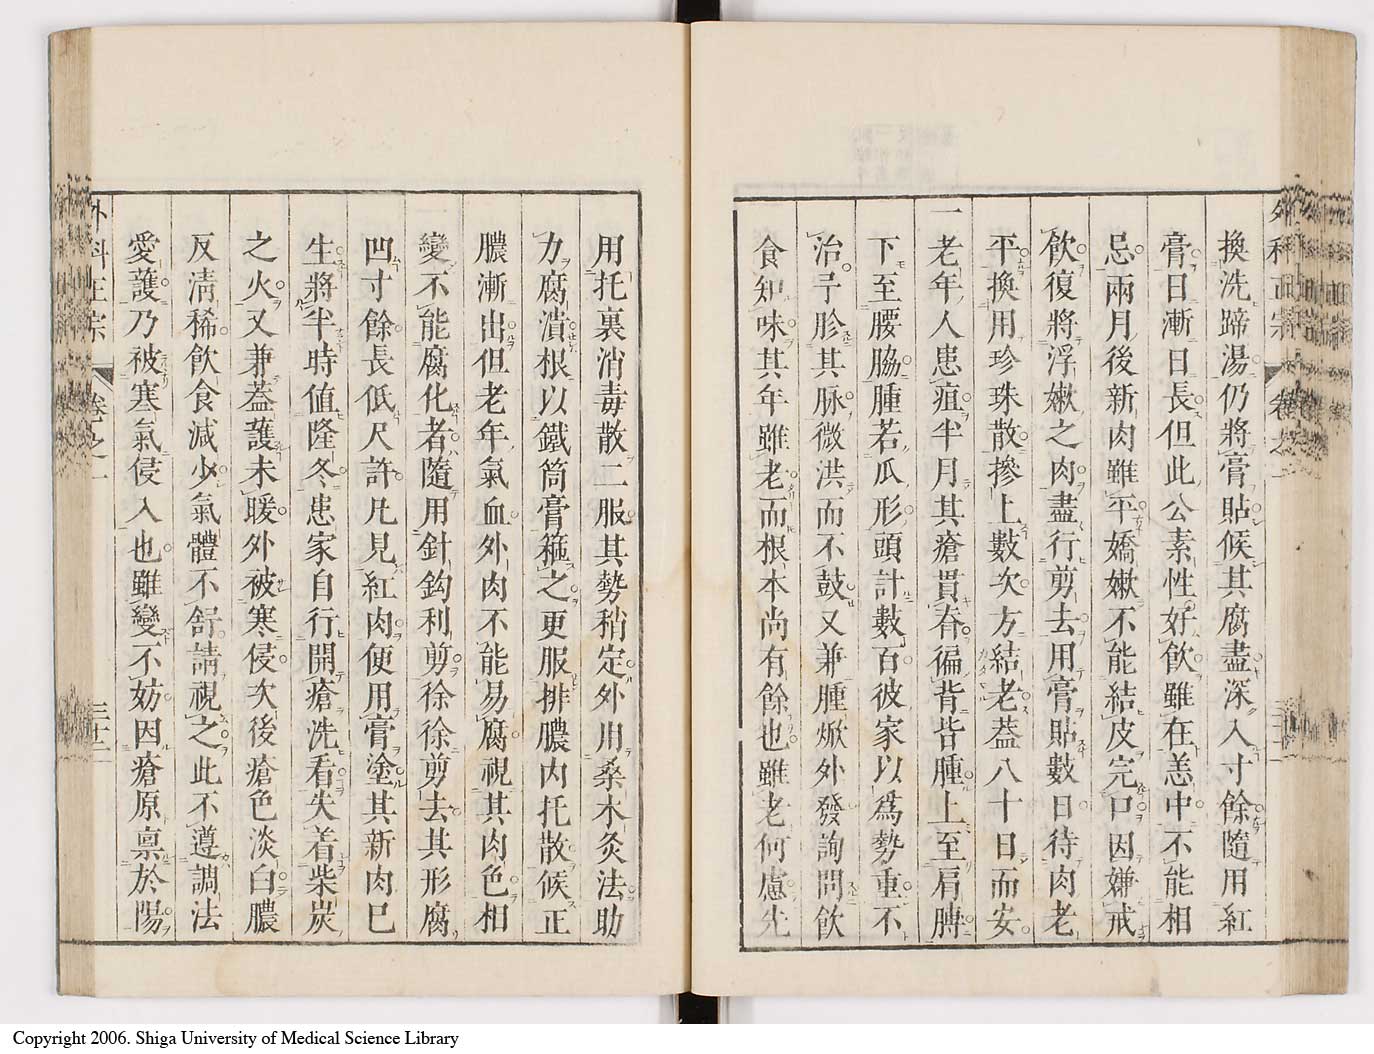 換洗蹄湯仍將膏貼候其腐盡深入寸餘隨用紅
膏日漸日長但此公素性好飮雖在恙中不能相
忌兩月後新肉雖平嬌嫩不能結皮完口因嫌戒
飮復將浮嫩之肉盡行剪去用膏貼數日待肉老
平換用珍珠散摻上數次方結老蓋八十日而安
一老年人患疽半月其瘡貫脊徧背皆腫上至肩膊
下至腰脇腫若瓜形頭計數百彼家以爲勢重不
治予胗其脉微洪而不鼓又兼腫焮外發詢問飮
食知味其年雖老而根本尚有餘也雖老何慮先
用托裏消毒散二服其勢稍定外用桑木灸法助
力腐潰根以鐵筒膏箍之更服排膿内托散候正
膿漸出但老年氣血外肉不能易腐視其肉色相
變不能腐化者隨用針鈎利剪徐徐剪去其形腐
凹寸餘長低尺許凡見紅肉便用膏塗其新肉巳
生將半時値隆冬患家自行開瘡洗看失着柴炭
之火又兼蓋護未暖外被寒侵次後瘡色淡白膿
反淸稀飮食減少氣體不舒請視之此不遵調法
愛護乃被寒氣侵入也雖變不妨因瘡原禀於陽
外科正宗 卷之一
三十二
Copyright 2006. Shiga University of Medical Science Library